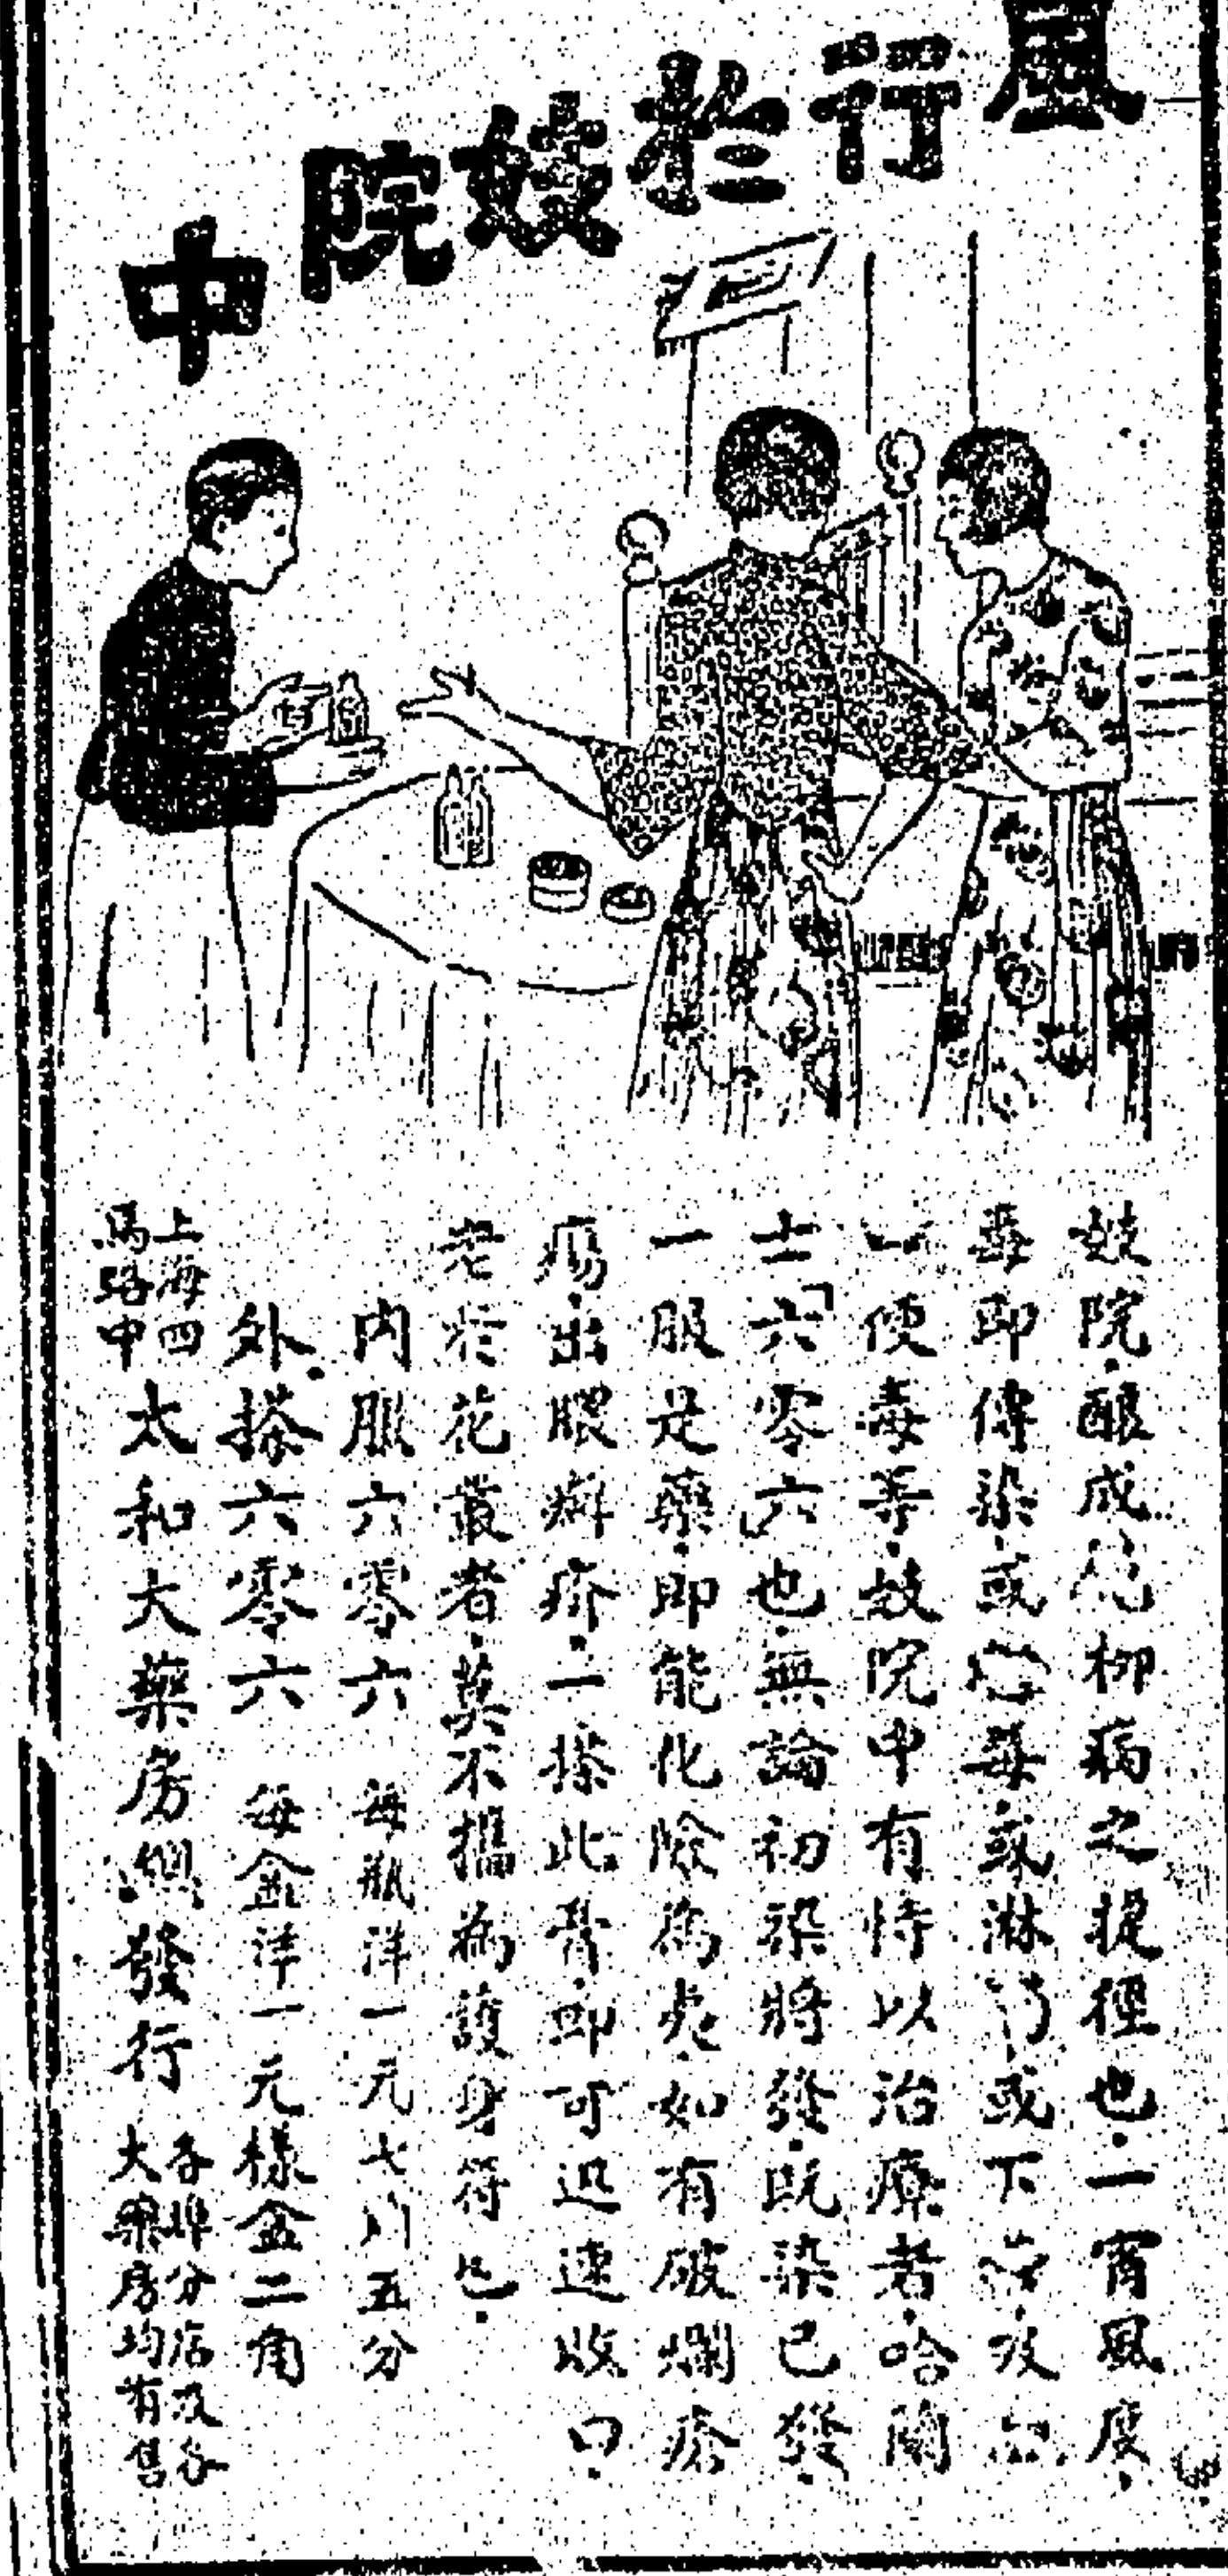 風行於妓院中
妓院·釀成花柳病之捷徑也·一宵風度·
毒即傳染·或芯毒·或淋濁·或下疳·及
便毒等·妓院中有恃以治療者·哈蘭
士「六零六」也·無論初染將發·既染已發·
一服是藥·即能化險為夷·如有破爛瘡
瘍·出眼癬疥·一搽此膏·即可迅速收口·
老於花叢者·莫不攜為護身符也·
內服六零六 每瓶洋一元七角五分
外搽六零六 每盒洋一元樣盒二角
上海四馬路中 太和大藥房 發行 各埠分店及各大藥房均有售